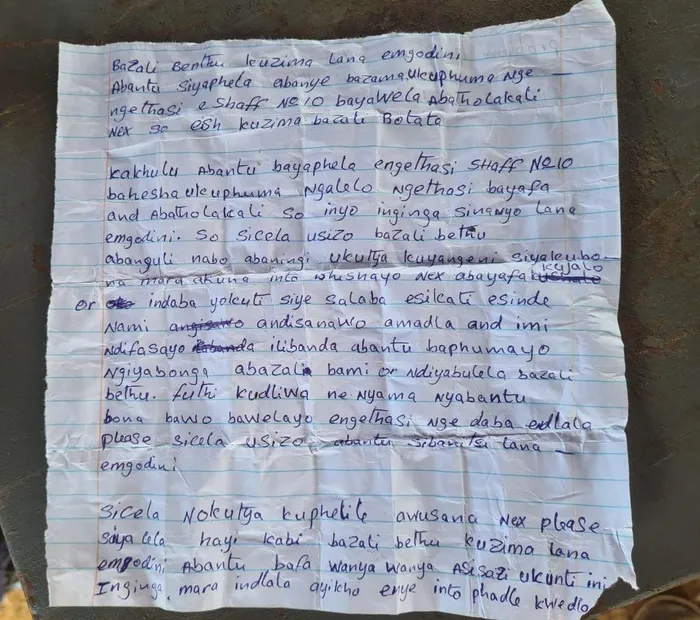 Bazali Benthu kuzima lana emgodini
Abantu siyaphela abanye bazama ukuphuma Nge
ngethasi e Shaff No 10 bayawela Abatholakali
Nex so esh kuzima bazali Botata
kakhulu Abantu bayaphela engethasi SHAFF No 10
bahesha ukuphuma Ngalelo Ngethasi bayafa
and Abatholakali so inyo inginga Sinanyo lana
emgodini. So sicela usizo bazali bethu
abanguli nabo abaningi ukutya kuyangeni siyakubo
na mara akuna into Nex abayafa kujalo
or indaba yokuti siye salaba esikati eside
Nami andisanawo amadla and imi
Ndifasayo ilibanda abantu baphumayo
Ngiyabonga abazali bami or Ndiyabulela bazali
bethu. futhi kudliwa ne Nyama Nyabantu
bona bawo bawelayo engethasi Nge daba endlala
please sicela usizo abantu Sibanitsi lana
emgodini
Sicela Nokutya kuphelile awusana Nex please
Siya lela hayi kabi bazali bethu kuzima lana
emgodini Abantu bafa wanya wanya Asisazi ukunti ini
Inginga mara indlala ayikho enye into phadle kwedlo